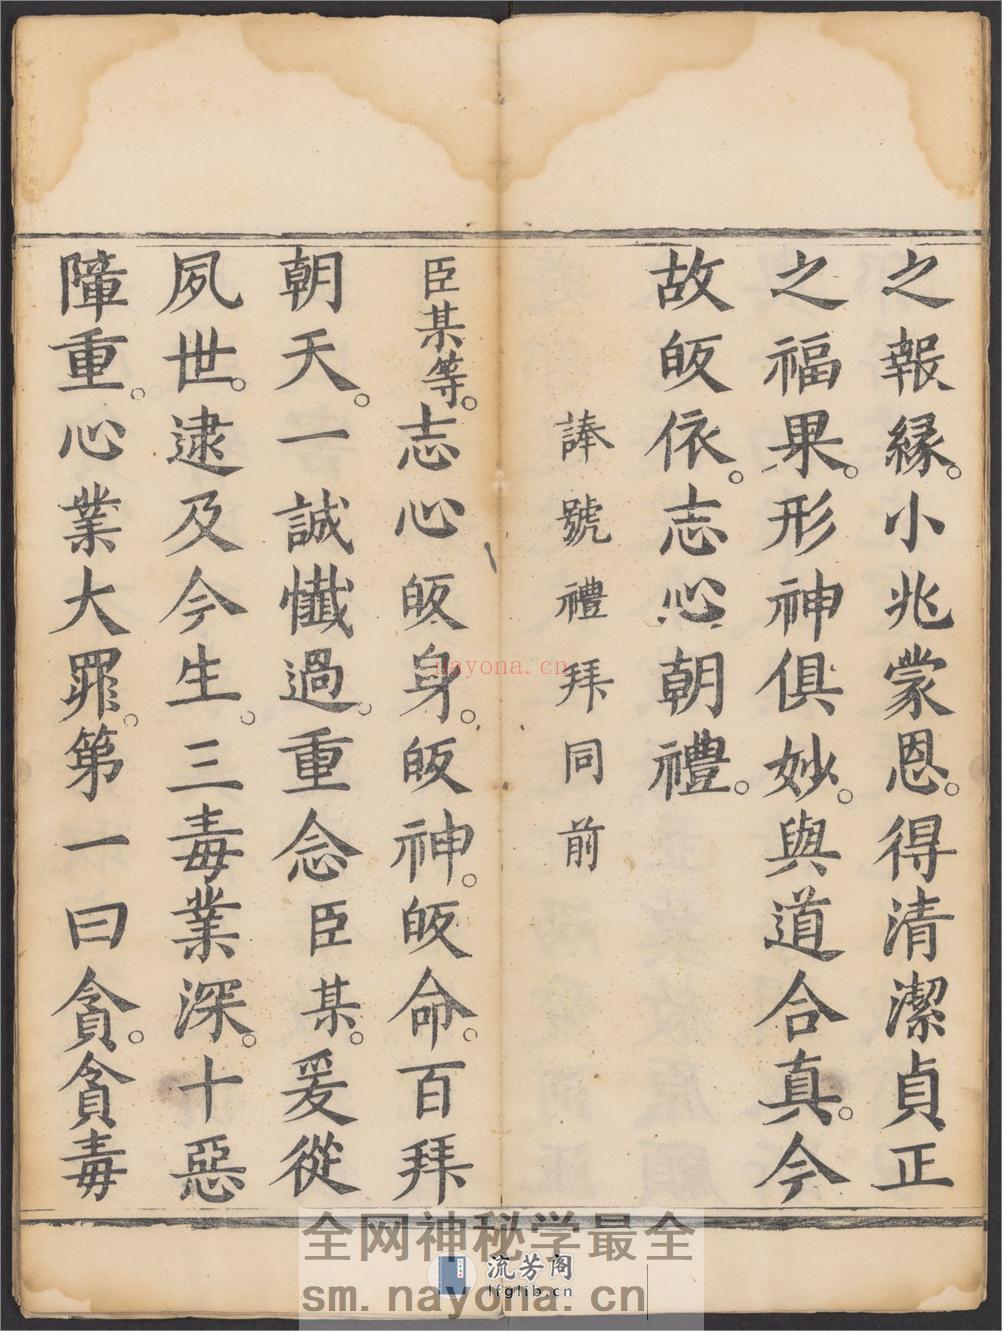 之報緣。小兆蒙恩。得清潔貞正
之福果。形神俱妙。與道合真。今
故皈依。志心朝禮。
諱號禮拜同前
臣某等。志心皈身。皈神。皈命。百拜
朝天。一誠懺過。重念臣某。爰從
夙世。逮及今生。三毒業深。十惡
障重。心業大罪。第一曰貪。貪毒
nayona.cn
全网神秘学最全
流芳阁
lfglib.cn
sm.nayona.cn